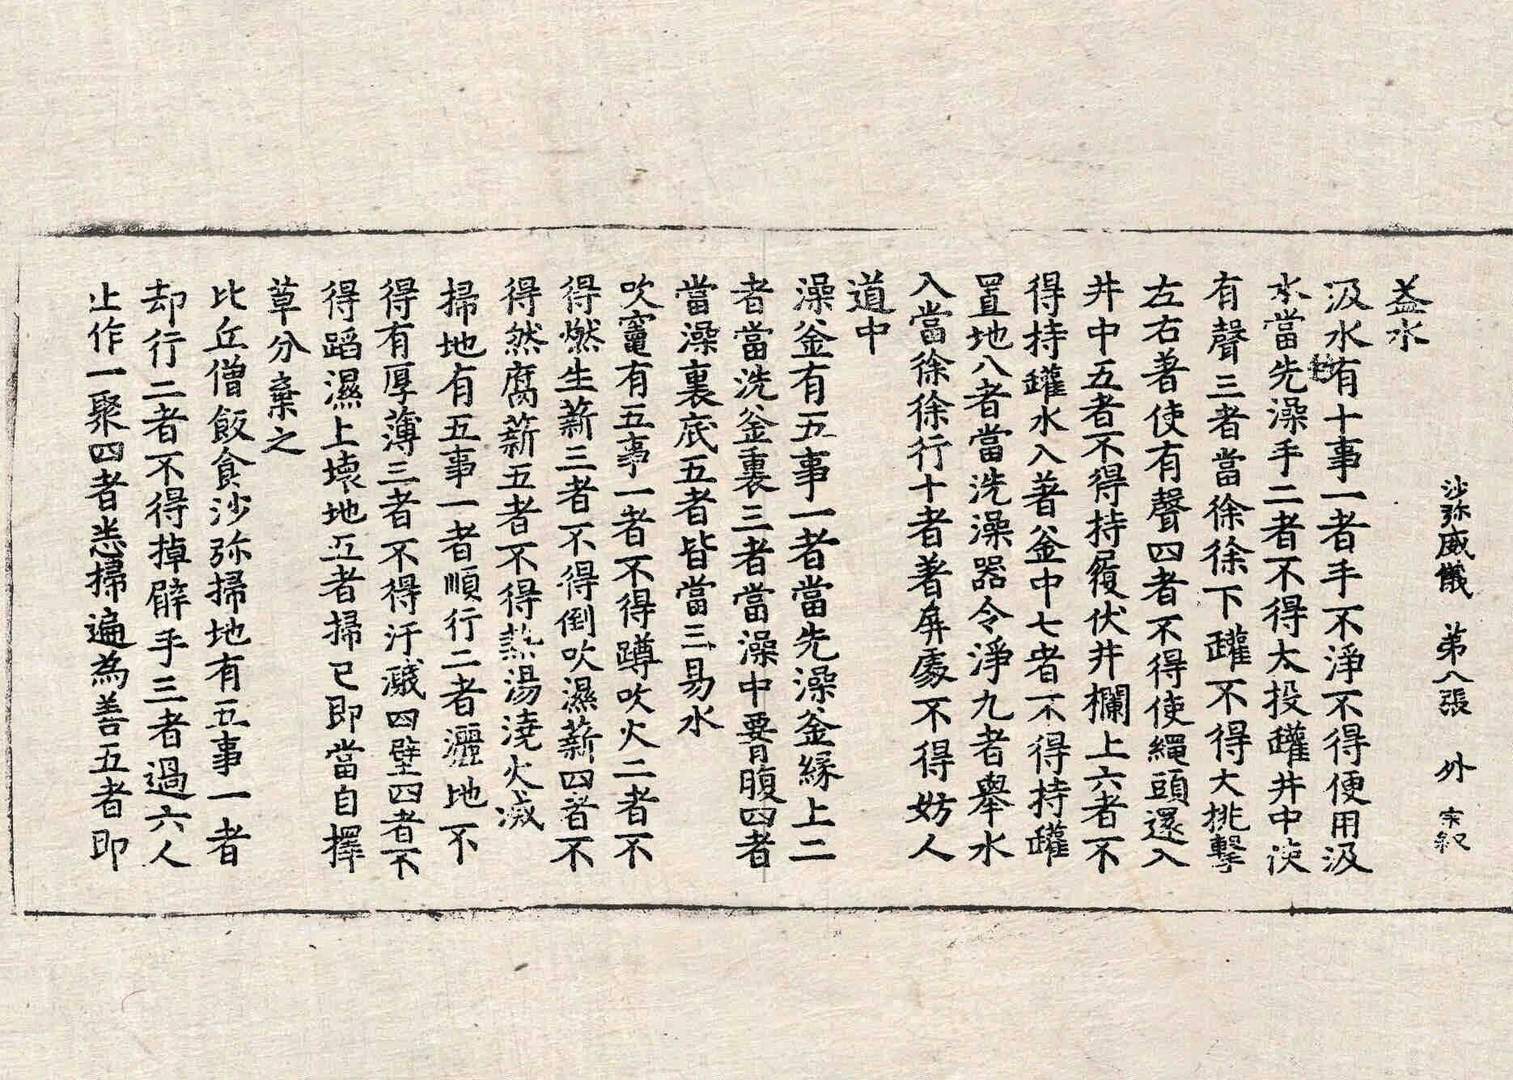 沙弥威儀 第八張 外 宋叙
益水
汲水有十事一者手不淨不得便用汲
水當先澡手二者不得大投罐井中使
有聲三者當徐徐下罐不得大挑擊
左右著使有聲四者不得使繩頭還入
井中五者不得持履伏井欄上六者不
得持罐水入著釜中七者不得持罐
置地八者當洗澡器令淨九者舉水
入當徐徐行十者著屏處不得妨人
道中
澡釜有五事一者當先澡釜緣上二
者當洗釜裏三者當澡中要腹四者
當澡裏底五者皆當三易水
吹竈有五事一者不得蹲吹火二者不
得燃生薪三者不得倒吹濕薪四者不
得然腐薪五者不得熱湯澆火滅
掃地有五事一者順行二者灑地不
得有厚薄三者不得汙濺四壁四者不
得蹈濕上壞地五者掃已即當自擇
草分棄之
比丘僧飯食沙弥掃地有五事一者
却行二者不得掉臂手三者過六人
止作一聚四者悉掃遍為善五者即